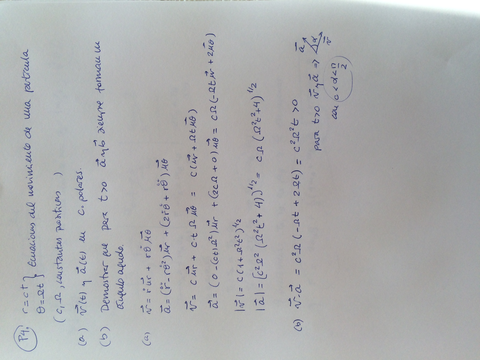 P4. r = ct } Ecuaciones del movimiento de una partícula
θ = Ωt
(c, Ω, constantes positivas)
(a) v⃗(t) y a⃗(t) en c. polares.
(b) Demostrar que para t>0 a⃗ y v⃗ siempre forman un
ángulo agudo.
(a) v⃗ = ṙ u⃗r + rθ̇ u⃗θ
a⃗ = (r̈ - rθ̇²) u⃗r + (2ṙθ̇ + rθ̈) u⃗θ
v⃗ = c u⃗r + c·t Ω u⃗θ = c(u⃗r + Ωt u⃗θ)
a⃗ = (0 - (ct)Ω²) u⃗r + (2cΩ + 0) u⃗θ = cΩ(-Ωt u⃗r + 2u⃗θ)
|v⃗| = c(1 + Ω²t²)^1/2
|a⃗| = [c²Ω²(Ω²t² + 4)]^1/2 = cΩ(Ω²t² + 4)^1/2
(b) v⃗·a⃗ = c²Ω(-Ωt + 2Ωt) = c²Ω²t > 0
para t>0 v⃗ y a⃗ ⇒ a⃗ α v⃗
con 0 < α < π/2